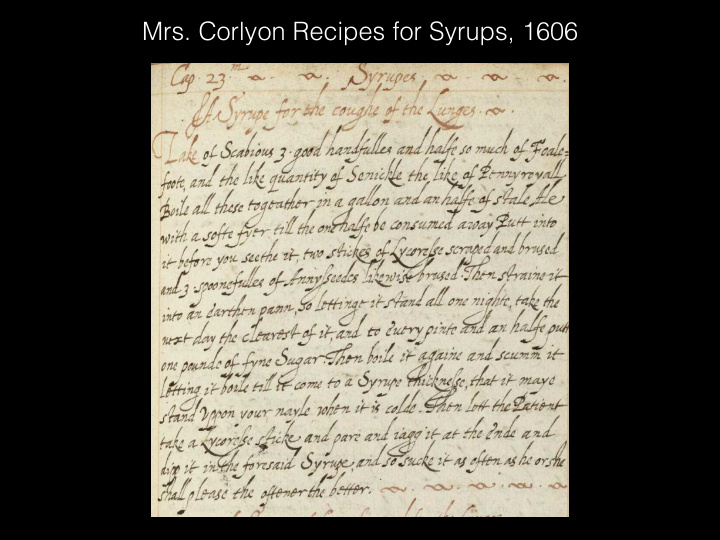 Mrs. Corlyon Recipes for Syrups, 1606
Cap. 23.m Syrupes
A Syrupe for the coughe of the Lunges.
Take of Scabious 3. good handfulles and halfe so much of Foale=
foote, and the like quantity of Senickle the like of Pennyroyall
Boile all these togeather in a gallon and an halfe of stale Ale
with a softe fyer till the one halfe be consumed away Putt into
it before you seethe it, two stickes of Lycoresse scraped and brused
and 3. spoonefulles of Annyseedes likewise brused. Then straine it
into an Earthen pann, so lettinge it stand all one nighte, take the
next day the clearest of it, and to every pinte and an halfe putt
one pounde of fyne Sugar. Then boile it againe and scumm it
letting it boile till it come to a Syrupe thicknesse, that it maye
stand Uppon your nayle when it is colde. Then lett the Patient
take a Lycoresse sticke and pare and iagg it at the Ende and
dipp it in the foresaid Syrupe, and so sucke it as often as he or she
shall please the oftener the better.